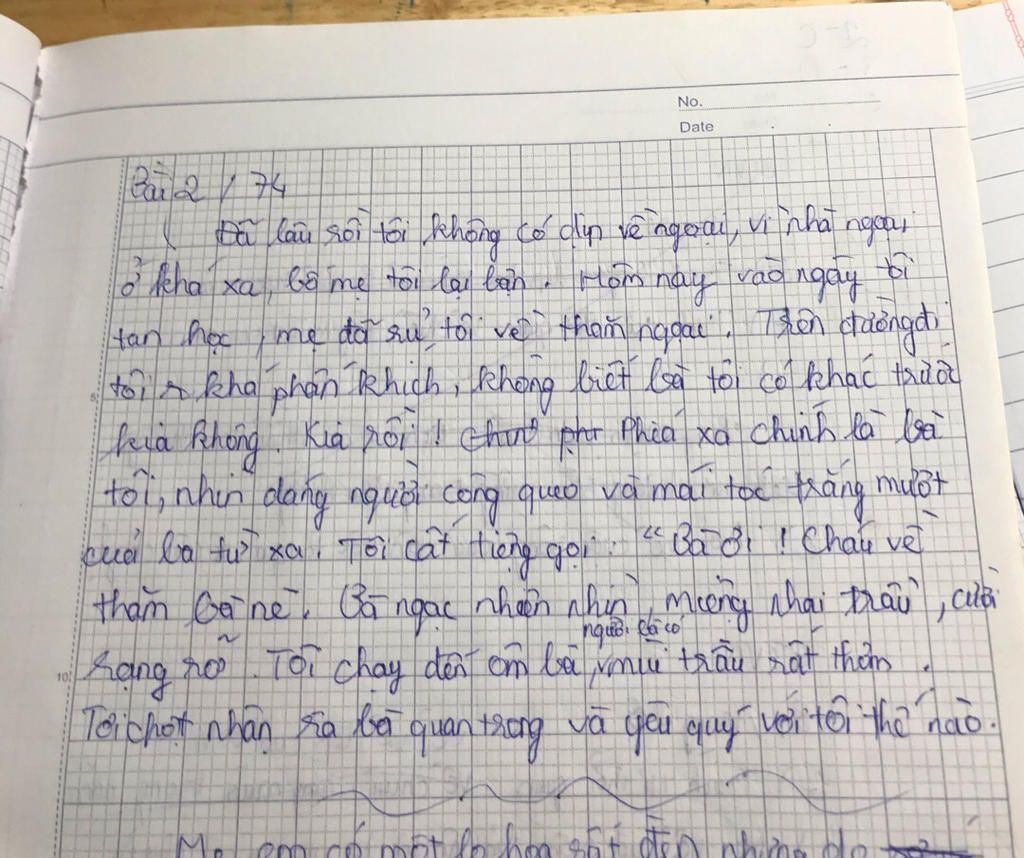 No.
Date
Bài 2 / 74
Đã lâu rồi tôi không có dịp về ngoại, vì nhà ngoại
ở khá xa, bố mẹ tôi lại bận. Hôm nay vào ngày tôi
tan học, mẹ đã rủ tôi về thăm ngoại. Trên đường đi
tôi khá phấn khích, không biết bà tôi có khác trước
kia không. Kia rồi! Phía xa chính là bà
tôi, nhìn dáng người còng queo và mái tóc trắng mướt
của bà từ xa. Tôi cất tiếng gọi: "Bà ơi! Cháu về
thăm bà nè. Bà ngạc nhiên nhìn, miệng nhai trầu, cười
người bà có
rạng rỡ. Tôi chạy đến ôm bà, mùi trầu rất thơm.
Tôi chợt nhận ra bà quan trọng và yêu quý với tôi thế nào.
Mẹ em có một lọ hoa rất đẹp nhưng do